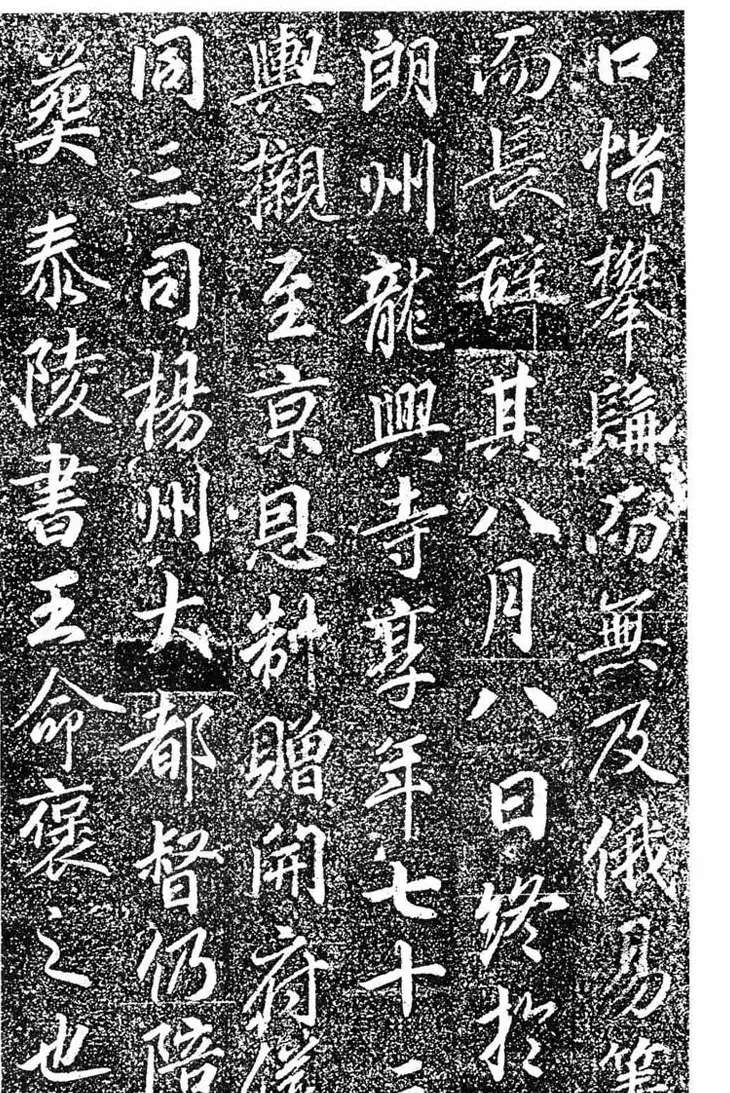 口惜攀髯而無及俄易
而長辭其八月八日終於
朗州龍興寺享年七十
輿櫬至京恩制贈開府儀
同三司楊州大都督仍陪
葬泰陵書王命褒之也